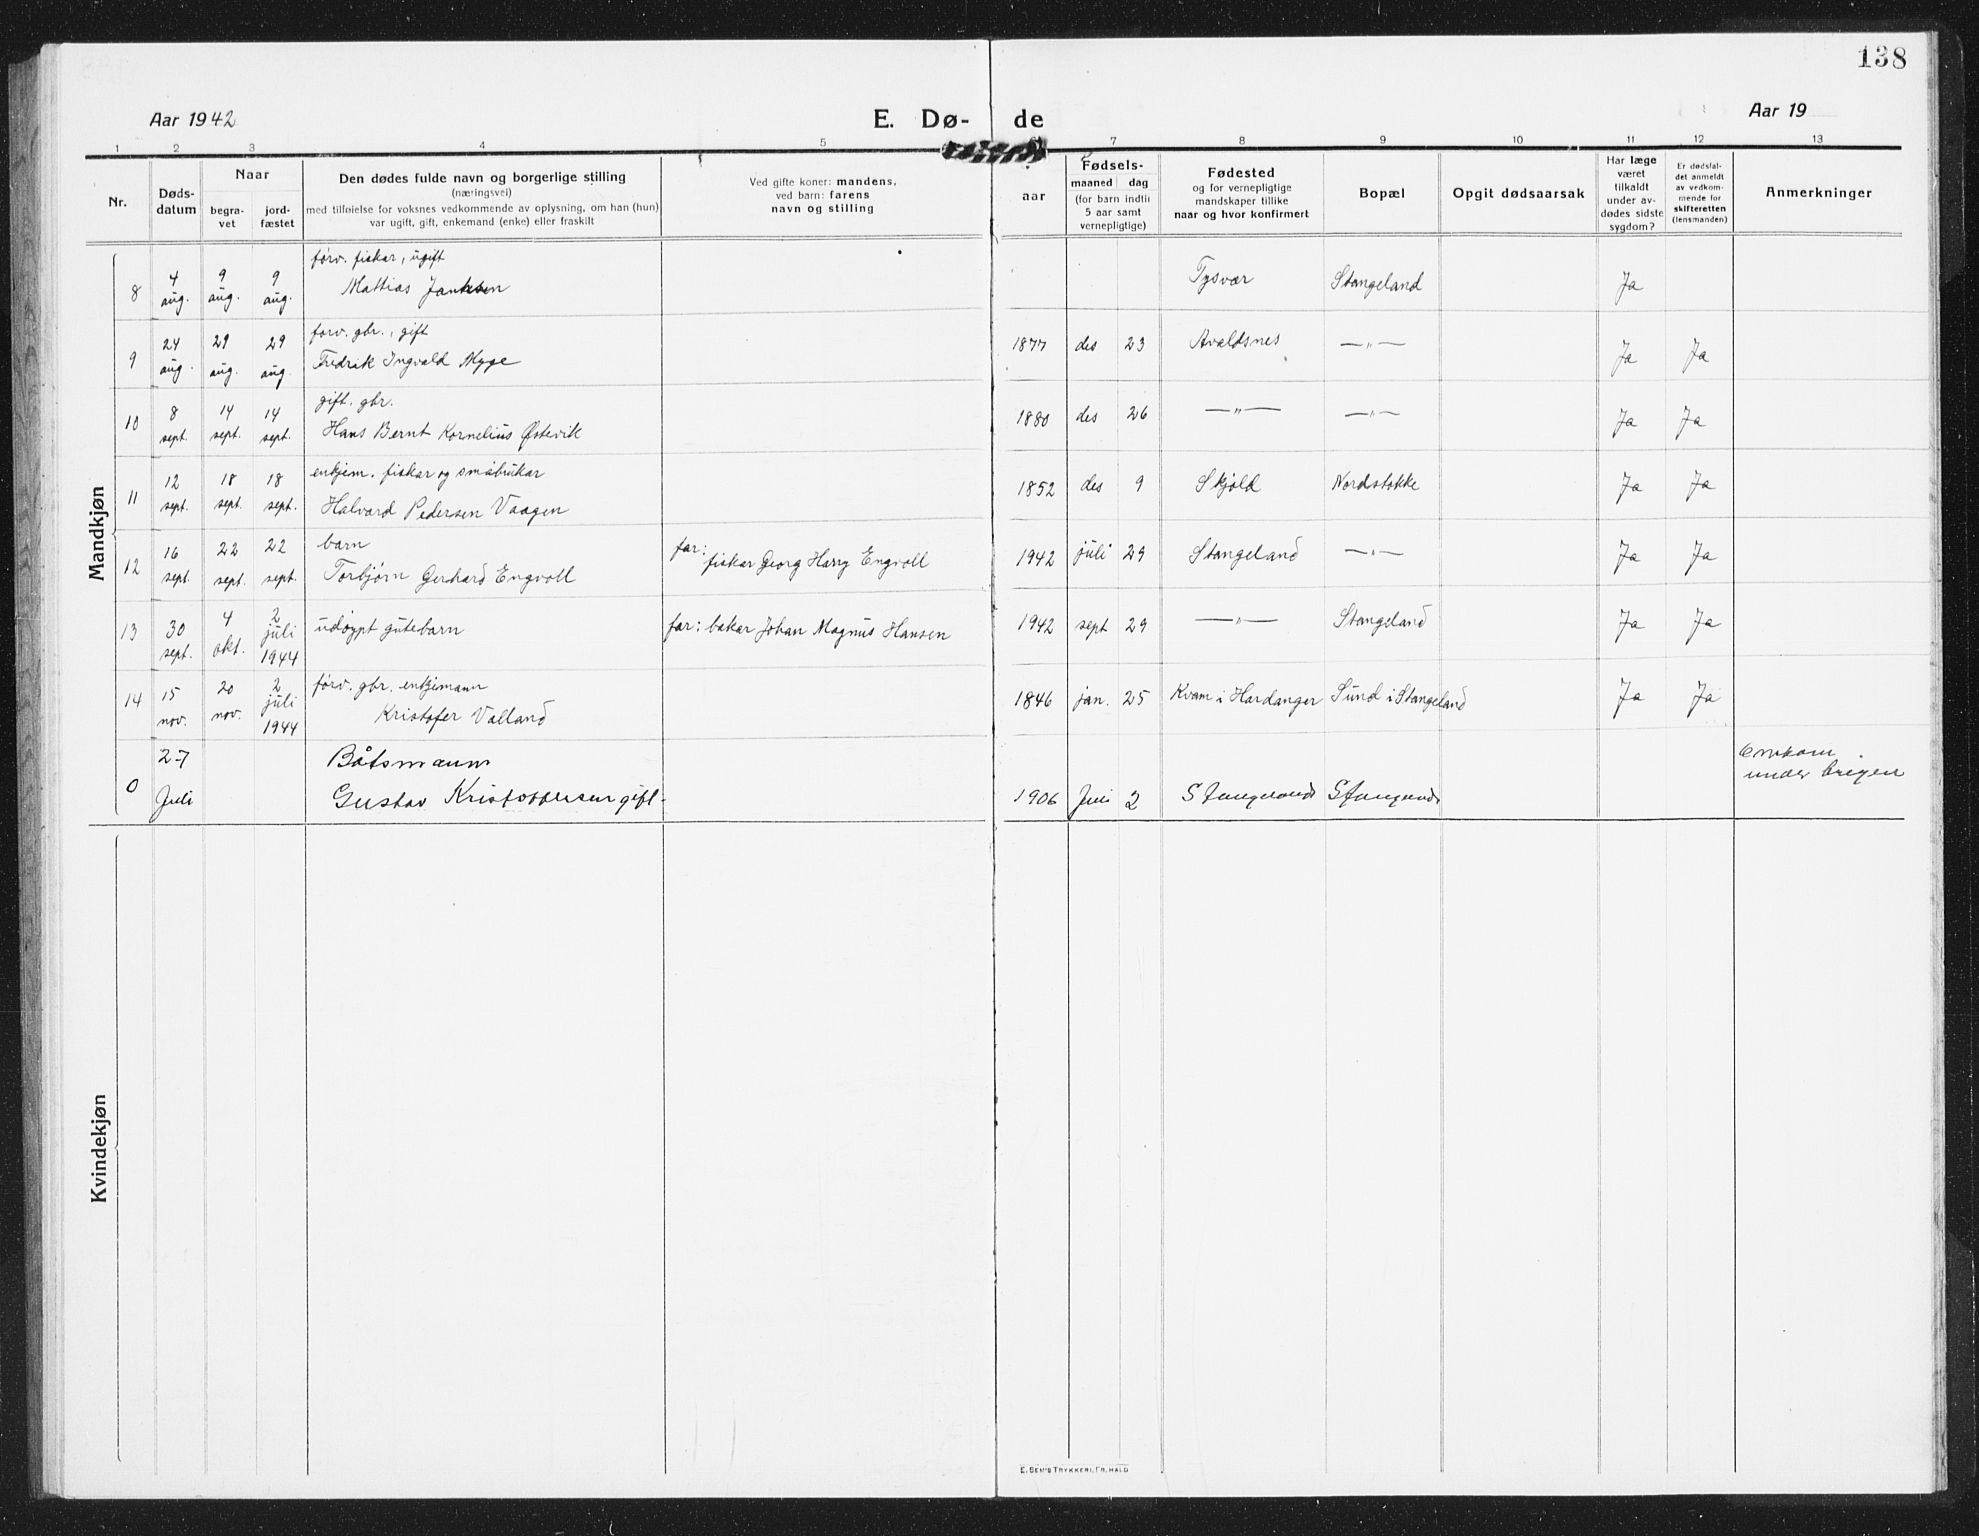 138
Aar 1942 E. Dø- de Aar 19
1 2 3 4 5 7 8 9 10 11 12 13
Nr.
Døds-
datum
Naar
begra-
vet
jord-
fæstet
Den dødes fulde navn og borgerlige stilling
(næringsvei)
med tilføielse for voksnes vedkommende av oplysning, om han (hun)
var ugift, gift, enkemand (enke) eller fraskilt
Ved gifte koner: mandens,
ved barn: farens
navn og stilling
aar
Fødsels-
maaned dag
(for barn indtil
5 aar samt
vernepligtige)
Fødested
og for vernepligtige
mandskaper tillike
naar og hvor konfirmert
Bopæl
Opgit dødsaarsak
Har læge
været
tilkaldt
under av-
dødes sidste
sygdom?
Er dødsfal-
det anmeldt
av vedkom-
mende for
skifteretten
(lensmanden)
Anmerkninger
Mandkjøn
8 4 aug. 9 aug. 9 aug. førv. fiskar, ugift
Mattias Tysvær Stangeland Ja
9 24 aug. 29 aug. 29 aug. forv. gbr., gift
Fredrik Ingvald Myge 1877 des 23 Avaldsnes —"— Ja Ja
10 8 sept. 14 sept. 14 sept. gift. gbr.
Hans Bernt Kornelius Østevik 1880 des 26 —"— —"— Ja Ja
11 12 sept. 18 sept. 18 sept. enkjem. fiskar og småbrukar
Halvard Pedersen Vaagen 1852 des 9 Skjold Nordstokke Ja Ja
12 16 sept. 22 sept. 22 sept. barn
Torbjørn Gerhard Engvoll far: fiskar Georg Harry Engvoll 1942 juli 29 Stangeland —"— Ja Ja
13 30 sept. 4 okt. 2 juli 1944 udøypt gutebarn far: bakar Johan Magnus Hansen 1942 sept 29 —"— Stangeland Ja Ja
14 15 nov. 20 nov. 2 juli 1944 førv. gbr. enkjemann
Kristofer Valland 1846 jan. 25 Kvam i Hardanger Sund i Stangeland Ja Ja
0 27 Juli Båtsmann
Gustav Kristoffersen gift. 1906 Juni 2 Stangeland Stangeland Omkom
under krigen
Kvindekjøn
E. SEM'S TRYKKERI, FR.HALD